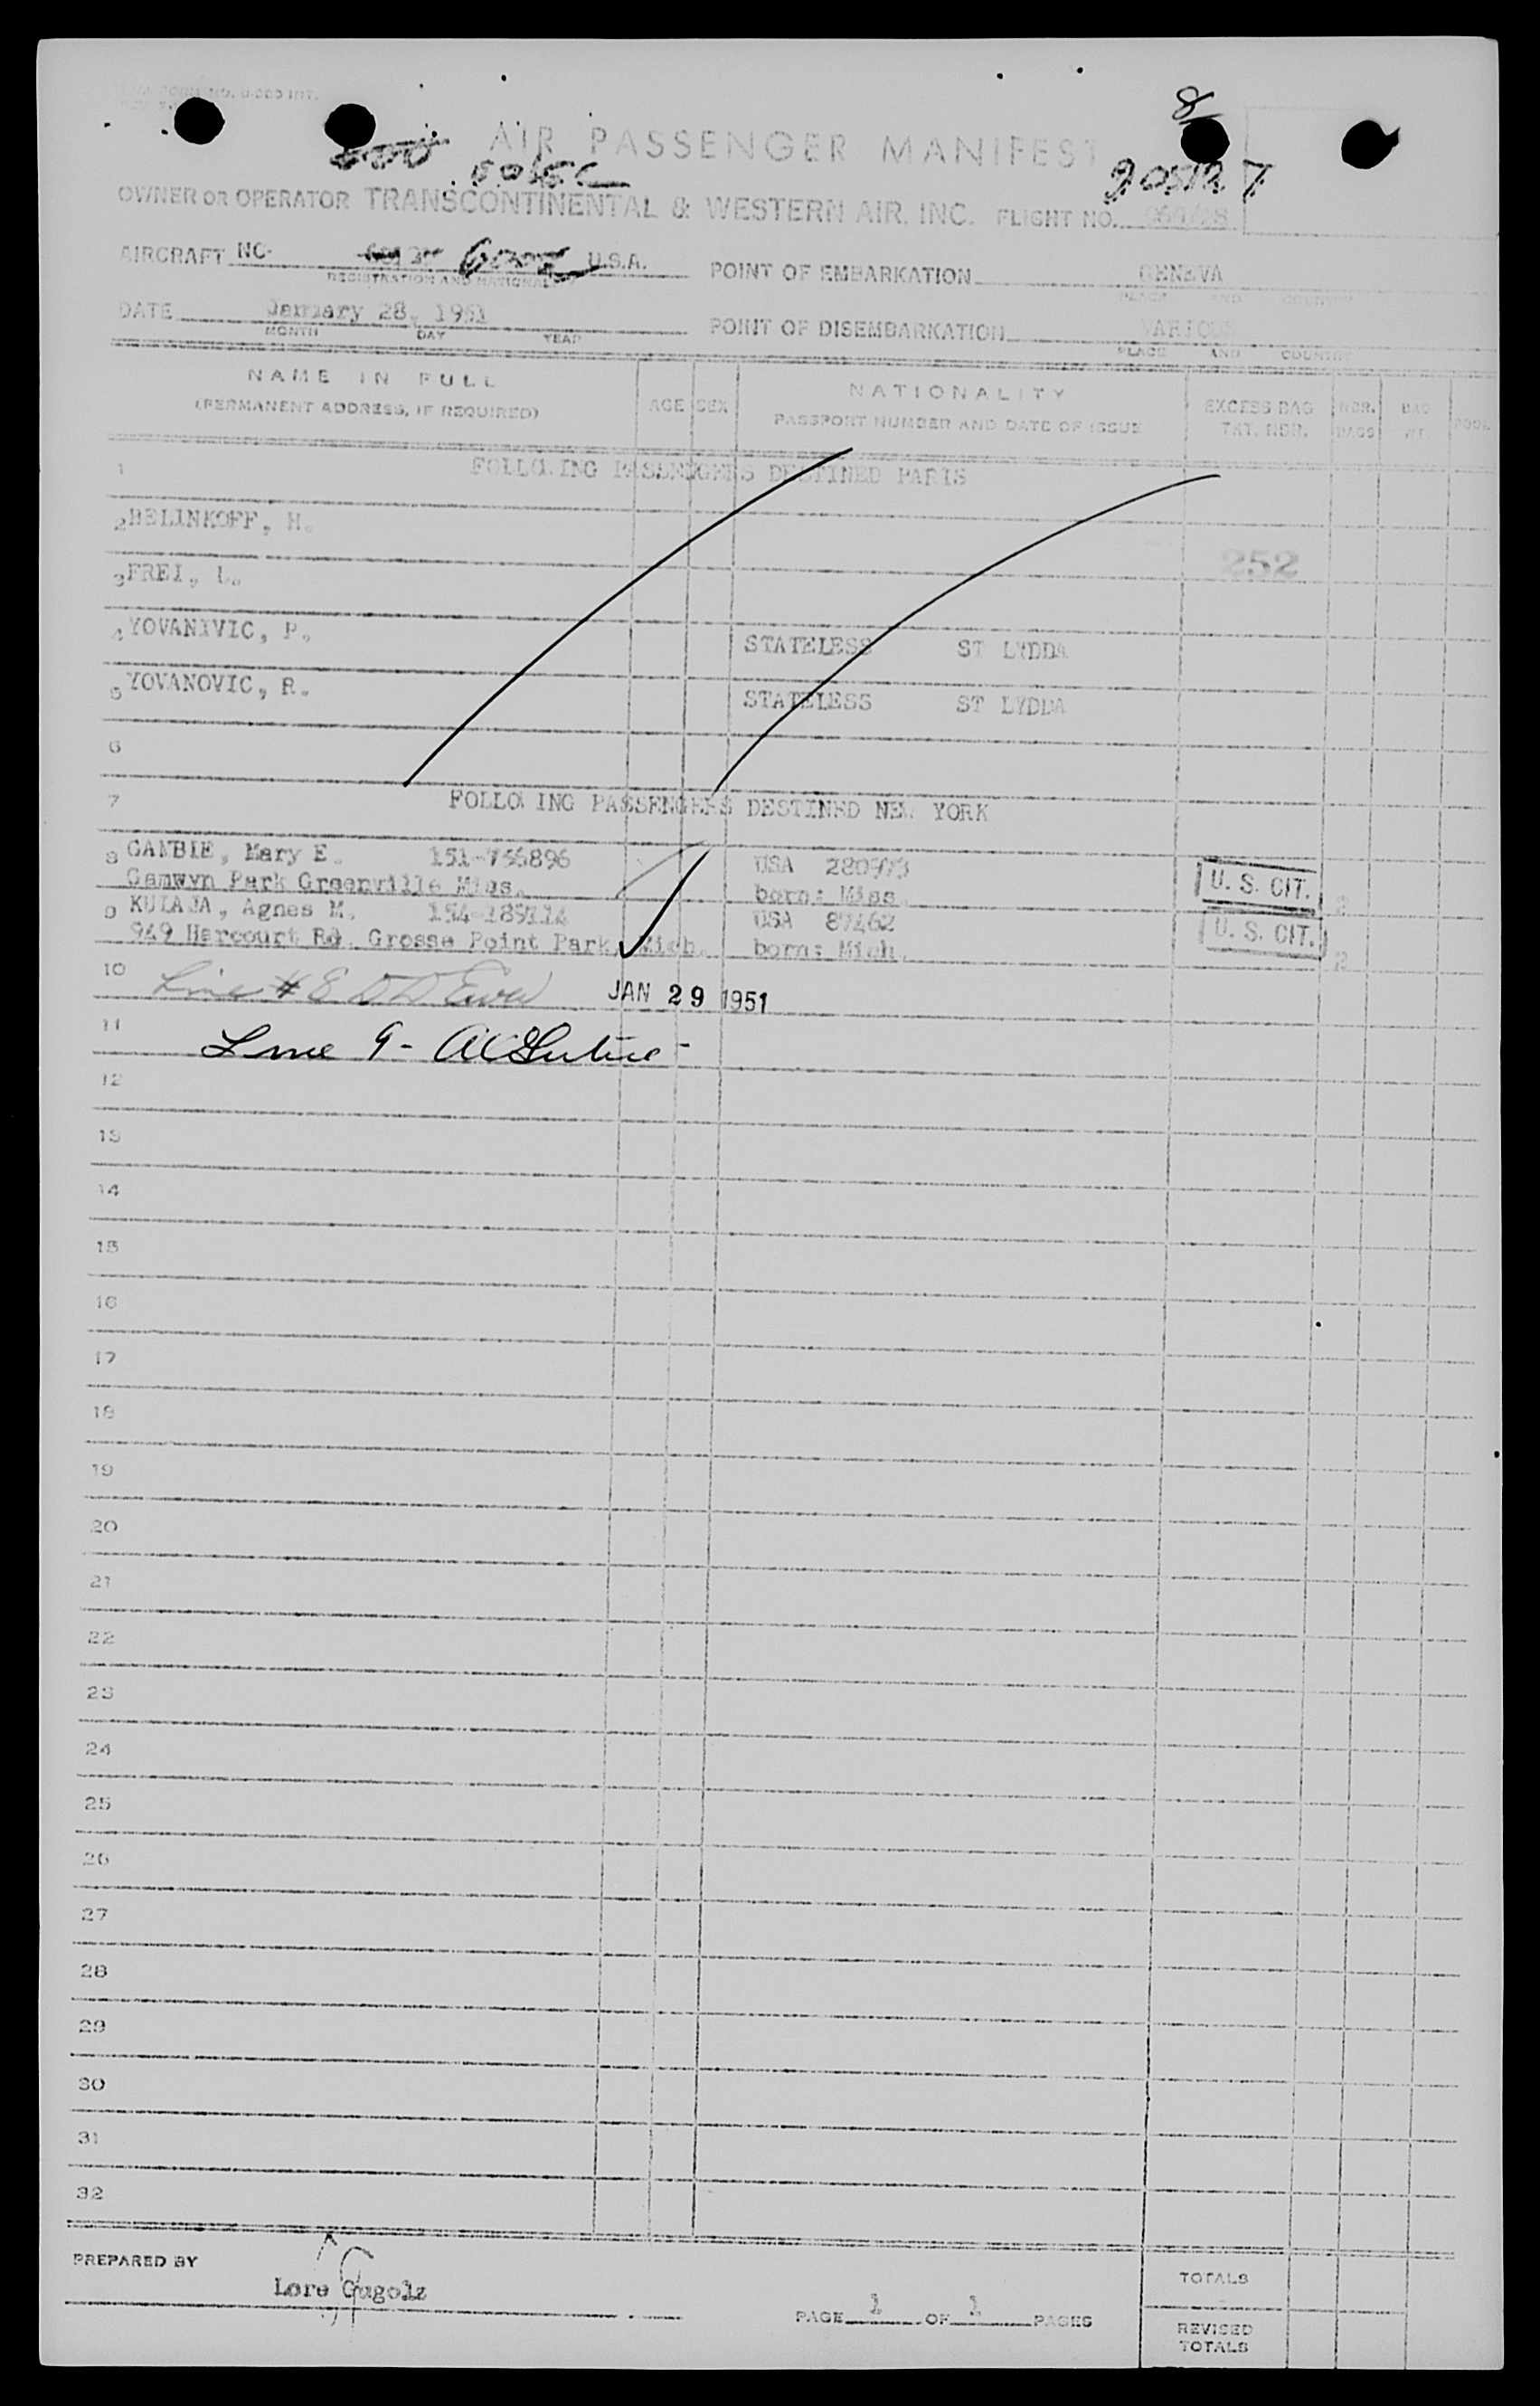 8
AIR PASSENGER MANIFEST
OWNER OR OPERATOR TRANSCONTINENTAL & WESTERN AIR, INC. FLIGHT NO.
AIRCRAFT NC- U.S.A. POINT OF EMBARKATION GENEVA
REGISTRATION AND NATIONALITY PLACE AND COUNTRY
DATE January 28, 1951 POINT OF DISEMBARKATION VARIOUS
MONTH DAY YEAR PLACE AND COUNTRY
NAME IN FULL NATIONALITY
(PERMANENT ADDRESS, IF REQUIRED) AGE SEX PASSPORT NUMBER AND DATE OF ISSUE EXCESS BAG TKT. NBR. NBR. BAGS BAG WT.
1 FOLLOWING PASSENGERS DESTINED PARIS
2 BELINKOFF, H.
3 FREI, L. 252
4 YOVANIVIC, P. STATELESS ST LYDDA
5 YOVANOVIC, R. STATELESS ST LYDDA
6
7 FOLLOWING PASSENGERS DESTINED NEW YORK
8 GAMBIE, Mary E. USA U. S. CIT.
Park Greenville Miss. born: Miss.
9 KULAJA, Agnes M. USA U. S. CIT. 2
949 Harcourt Rd. Grosse Point Park, Mich. born: Mich.
10 Line # 8 JAN 29 1951
11 Line 9 -
12
13
14
15
16
17
18
19
20
21
22
23
24
25
26
27
28
29
30
31
32
PREPARED BY Lore Gugolz
PAGE 1 OF 1 PAGES
TOTALS
REVISED TOTALS